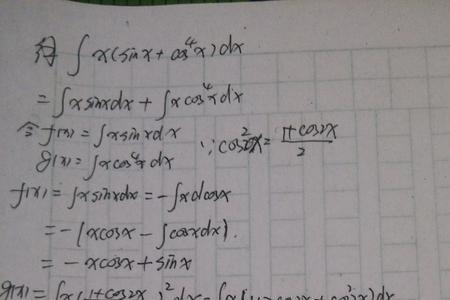 得 ∫x(sinx + cos⁴x)dx
= ∫xsinxdx + ∫xcos⁴xdx
令 f(x) = ∫xsinxdx ∵ cos²x = (1+cos2x)/2
g(x) = ∫xcos⁴xdx
f(x) = ∫xsinxdx = -∫xdcosx
= -(xcosx - ∫cosxdx).
= -xcosx + sinx
g(x) = ∫x(1+cos2x)²dx